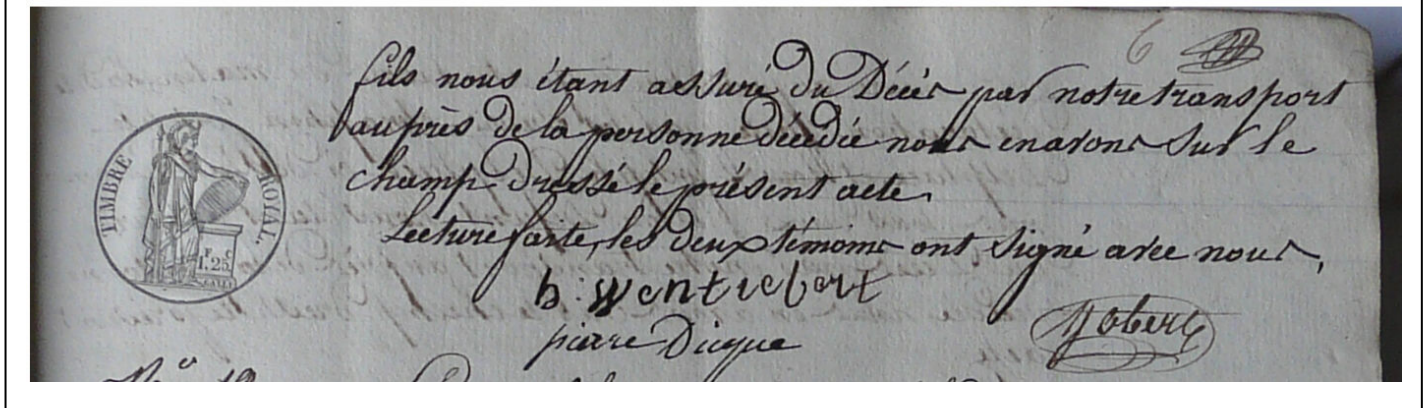 6
fils nous étant assuré du Décès par notre transport
auprès de la personne décédée nous en avons sur le
champ dressé le présent acte.
Lecture faite, les deux témoins ont signé avec nous,
TIMBRE ROYAL.
F. C
1.25
h: Wentzebert
pierre Dicque
N° 12